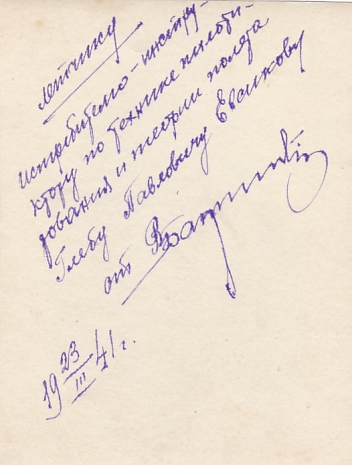 летчику
истребителю - инстру-
ктору по технике пилоти-
рования и теории полета
Глебу Павловичу Евсикову
от
19 23/III 41 г.